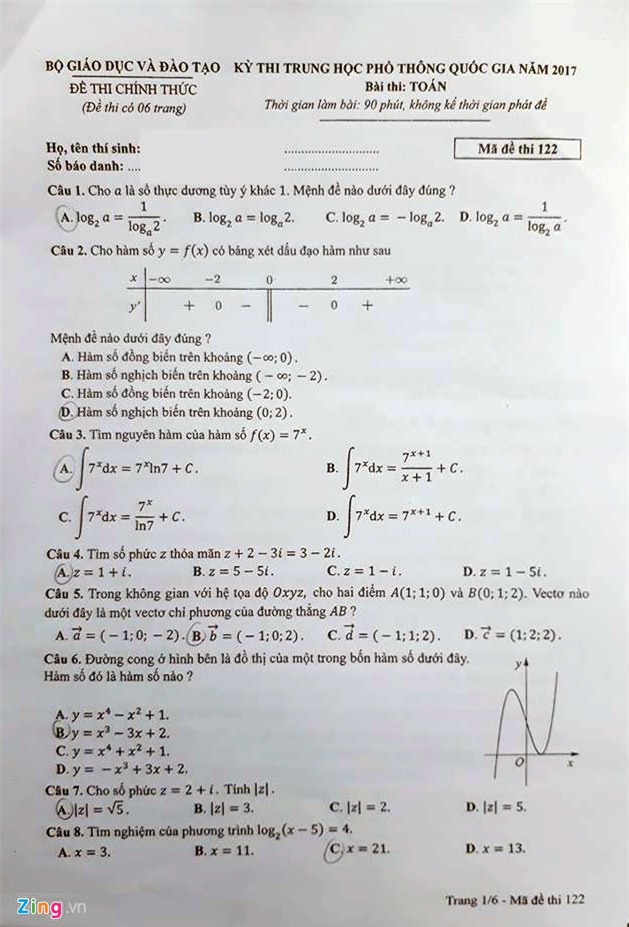 BỘ GIÁO DỤC VÀ ĐÀO TẠO KỲ THI TRUNG HỌC PHỔ THÔNG QUỐC GIA NĂM 2017
ĐỀ THI CHÍNH THỨC Bài thi: TOÁN
(Đề thi có 06 trang) Thời gian làm bài: 90 phút, không kể thời gian phát đề
Họ, tên thí sinh: ............................ Mã đề thi 122
Số báo danh: .... ............................
Câu 1. Cho a là số thực dương tùy ý khác 1. Mệnh đề nào dưới đây đúng ?
A. log₂ a = 1/logₐ 2. B. log₂ a = logₐ 2. C. log₂ a = − logₐ 2. D. log₂ a = 1/log₂ a.
Câu 2. Cho hàm số y = f(x) có bảng xét dấu đạo hàm như sau
x −∞ −2 0 2 +∞
y' + 0 − || − 0 +
Mệnh đề nào dưới đây đúng ?
A. Hàm số đồng biến trên khoảng (−∞; 0).
B. Hàm số nghịch biến trên khoảng ( − ∞; − 2).
C. Hàm số đồng biến trên khoảng (−2; 0).
D. Hàm số nghịch biến trên khoảng (0; 2).
Câu 3. Tìm nguyên hàm của hàm số f(x) = 7ˣ.
A. ∫7ˣdx = 7ˣln7 + C. B. ∫7ˣdx = 7ˣ⁺¹/(x + 1) + C.
C. ∫7ˣdx = 7ˣ/ln7 + C. D. ∫7ˣdx = 7ˣ⁺¹ + C.
Câu 4. Tìm số phức z thỏa mãn z + 2 − 3i = 3 − 2i.
A. z = 1 + i. B. z = 5 − 5i. C. z = 1 − i. D. z = 1 − 5i.
Câu 5. Trong không gian với hệ tọa độ Oxyz, cho hai điểm A(1; 1; 0) và B(0; 1; 2). Vectơ nào
dưới đây là một vectơ chỉ phương của đường thẳng AB ?
A. d⃗ = ( − 1; 0; − 2). B. b⃗ = ( − 1; 0; 2). C. a⃗ = ( − 1; 1; 2). D. c⃗ = (1; 2; 2).
Câu 6. Đường cong ở hình bên là đồ thị của một trong bốn hàm số dưới đây.
Hàm số đó là hàm số nào ?
y
A. y = x⁴ − x² + 1.
B. y = x³ − 3x + 2.
C. y = x⁴ + x² + 1.
O x
D. y = − x³ + 3x + 2.
Câu 7. Cho số phức z = 2 + i. Tính |z|.
A. |z| = √5. B. |z| = 3. C. |z| = 2. D. |z| = 5.
Câu 8. Tìm nghiệm của phương trình log₂(x − 5) = 4.
A. x = 3. B. x = 11. C. x = 21. D. x = 13.
Trang 1/6 - Mã đề thi 122
Zing.vn